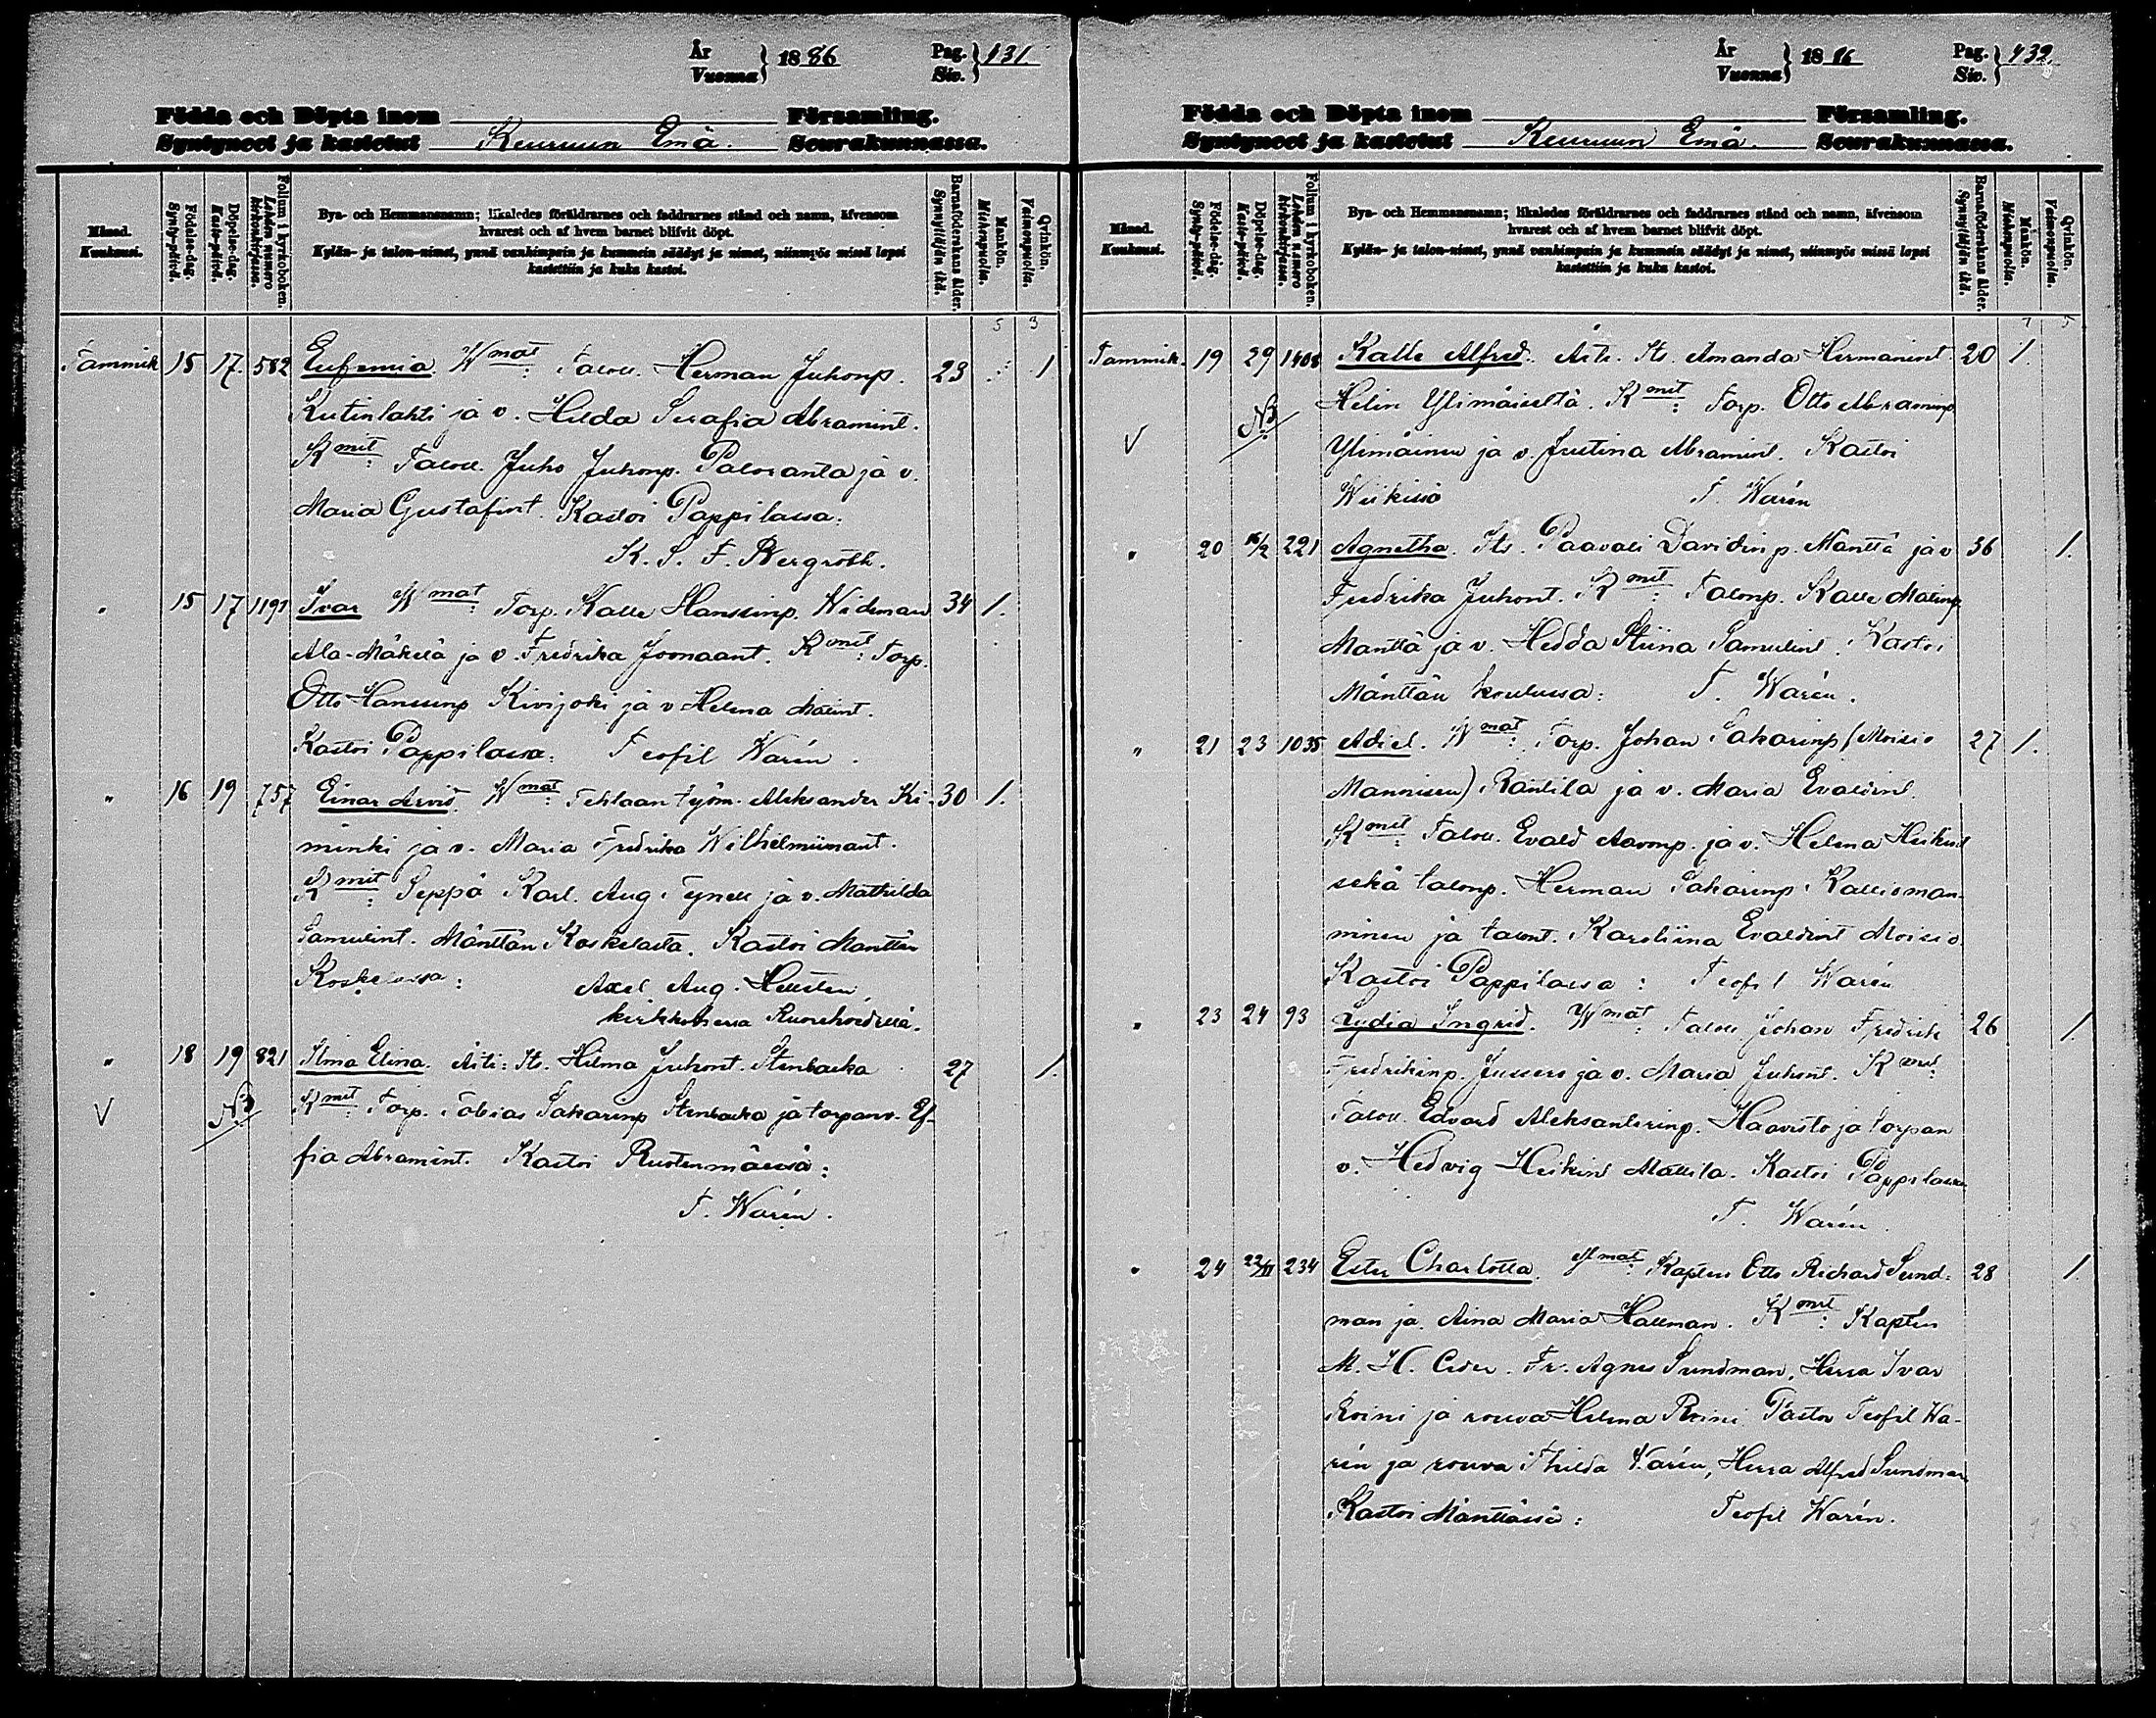 År
Vuonna } 1886 Pag.
Siv. } 131.
Födda och Döpta inom Församling.
Syntyneet ja kastetut Keuruun Emä. Seurakunnassa.
Månad.
Kuukausi.
Födelse-dag.
Synty-päivä.
Döpelse-dag.
Kaste-päivä.
Folium i kyrkoboken.
Lehden numero kirkonkirjassa.
Bya- och Hemmansnamn; likaledes föräldrarnes och faddrarnes stånd och namn, äfvensom
hvarest och af hvem barnet blifvit döpt.
Kylän- ja talon-nimet, ynnä vanhimpain ja kummein säädyt ja nimet, niinmyös missä lapsi
kastettiin ja kuka kastoi.
Barnaföderskans ålder.
Synnyttäjän ikä.
Mankön.
Miehenpuolia.
Qvinkön.
Vaimonpuolia.
5 3
Tammik 15 17. 582 Eufemia. Wmat: Taloll. Herman Juhonp. 23 1
Kutinlahti ja v. Hilda Serafia Abramint.
Kmit: Taloll. Juho Juhonp. Paloranta ja v.
Maria Gustafint. Kastoi Pappilassa:
K. S. F. Bergroth.
" 15 17 1191 Ivar Wmat: Torp. Kalle Hanssinp. Widman 34 1.
Ala-Mäkelä ja v. Fredrika Joonaant. Kmit: Torp.
Otto Hanssinp Kivijoki ja v Helena Matint.
Kastoi Pappilassa: Teofil Warén.
" 16 19 757 Einar Arvid. Wmat: Tehtaan työm. Aleksander Ki- 30 1.
minki ja v. Maria Fredrika Wilhelmiinant.
Kmit: Seppä Karl. Aug. Tynell ja v. Mathilda
Samulint. Mänttän Koskelasta. Kastoi Mänttän
Koskelassa: Axel Aug. Hellsten,
kirkkoherra Ruovehedellä.
" 18 19 821 Ilma Elina. Äiti: Its. Hilma Juhont. Stenbacka 27 1.
V NB Kmit: Torp. Tobias Sakarinp Stenbacka ja torparv. Ef-
fia Abramint. Kastoi Rustenmäessä:
T. Warén.
År
Vuonna } 1886 Pag.
Siv. } 132.
Födda och Döpta inom Församling.
Syntyneet ja kastetut Keuruun Emä. Seurakunnassa.
Månad.
Kuukausi.
Födelse-dag.
Synty-päivä.
Döpelse-dag.
Kaste-päivä.
Folium i kyrkoboken.
Lehden numero kirkonkirjassa.
Bya- och Hemmansnamn; likaledes föräldrarnes och faddrarnes stånd och namn, äfvensom
hvarest och af hvem barnet blifvit döpt.
Kylän- ja talon-nimet, ynnä vanhimpain ja kummein säädyt ja nimet, niinmyös missä lapsi
kastettiin ja kuka kastoi.
Barnaföderskans ålder.
Synnyttäjän ikä.
Mankön.
Miehenpuolia.
Qvinkön.
Vaimonpuolia.
7 5
Tammik. 19 29 1408 Kalle Alfred. Äiti. Its. Amanda Hermanint. 20 1.
NB Helin Ylimäiseltä. Kmit: Torp. Otto Abraminp
V Ylimäinen ja v. Justina Abramint. Kastoi
T. Warén
" 20 16/2 221 Agnetha. Its. Paavali Davidinp. Mänttä ja v 36 1.
Fredrika Juhont. Kmit: Talonp. Kalle Matinp
Mänttä ja v. Hedda Stiina Samulint. Kastoi
Mänttän koulussa: T. Warén.
" 21 23 1035 Adiel. Wmat: Torp. Johan Sakarinp (Moisio 27 1.
Manninen) Räntilä ja v. Maria Evaldint.
Kmit: Taloll. Evald Aaronp. ja v. Helena Heikint
sekä talonp. Herman Sakarinp. Kalliоman-
ninen ja talont. Karoliina Evaldint Moisio
Kastoi Pappilassa: Teofil Warén
" 23 24 93 Lydia Ingrid. Wmat: Taloll Johan Fredrik 26 1.
Fredrikinp. Jussero ja v. Maria Juhont. Kmit:
Taloll. Edvard Aleksanterinp. Haavisto ja torpan
v. Hedvig Heikint Mattila. Kastoi Pappilassa
T. Warén
" 24 22/II 234 Ester Charlotta. Wmat: Kapten Otto Richard Sund- 28 1.
man ja Aina Maria Hallman. Kmit: Kapten
M. H. Ceder. Fr. Agnes Sundman, Herra Ivar
Roini ja rouva Helena Roini Pastor Teofil Wa-
rén ja rouva Thilda Warén, Herra Alfred Sundman
Kastoi Mänttässä: Teofil Warén.